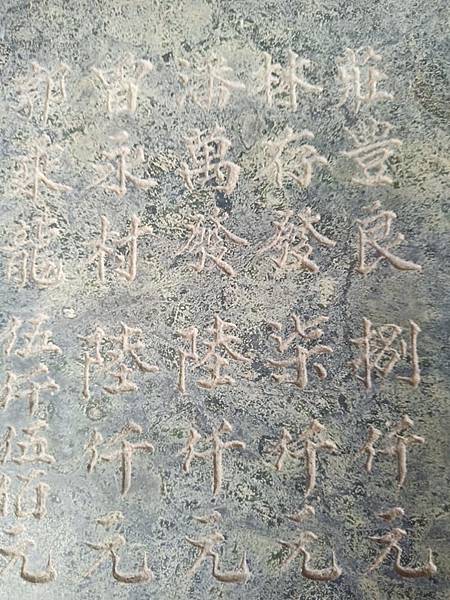 莊豊良捌仟元
林存發柒仟元
潘萬發陸仟元
曾永村陸仟元
郭來龍伍仟伍佰元